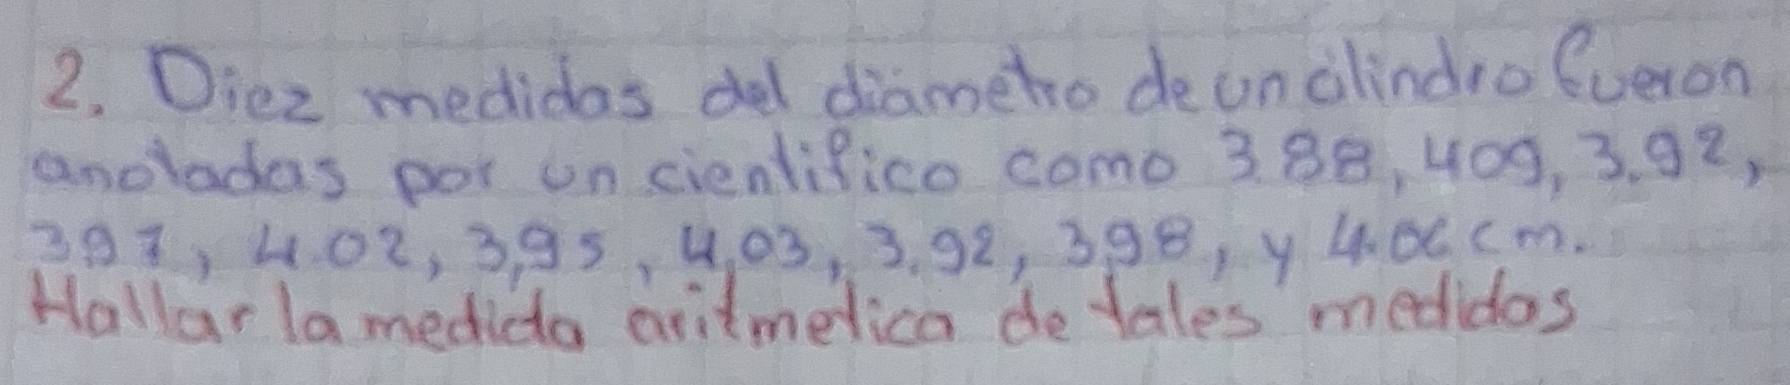 2. Diez medidas del diámetro de un cilindro fueron
anotadas por un cientifico como 3.88, 4.09, 3.92,
3.97, 4.02, 3,95, 4,03, 3.92, 3,98, y 4.06 cm.
Hallar la medida aritmetica de tales medidas